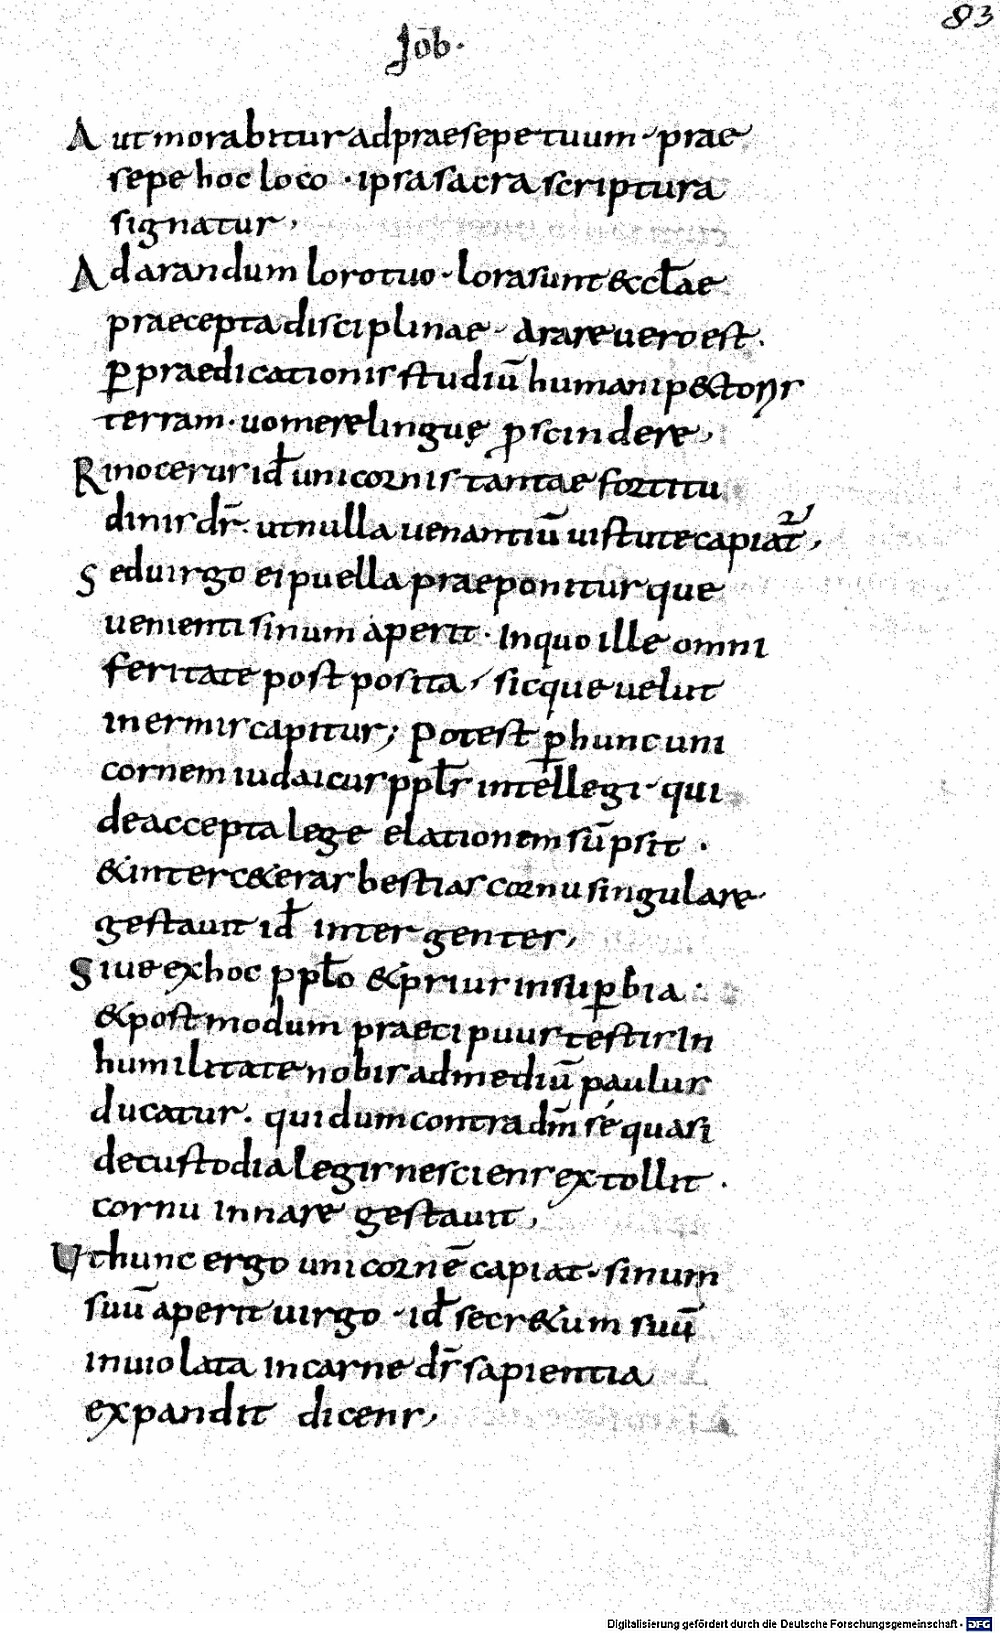 83
Iōb·
Aut morabitur ad praesepe tuum· prae
sepe hoc loco· ipsa sacra scriptura
signatur,
Ad arandum loro tuo· lora sunt & ccłae
praecepta disciplinae· Arare uero est·
p̲ praedicationis studiū humani p&toris
terram· uomere linguę ꝓscindere,
Rinocerus id̄ unicornis tantae fortitu
dinis dr̄· ut nulla uenantiū uirtute capiat̄,
Sed uirgo ei puella praeponitur que
uenienti sinum aperit· Inquo ille omni
feritate postposita, sicque uelut
inermis capitur; Potest p̲ hunc uni
cornem iudaicus ppłs intellegi· qui
de accepta lege elationem sūpsit·
& inter c&eras bestias cornu singulare
gestauit id̄ inter gentes,
Siue ex hoc ppło & prius in sup̲bia·
& postmodum praecipuus testis In
humilitate nobis ad mediū paulus
ducatur· qui dum contra dm̄ sé quasi
de custodia legis nesciens extollit·
cornu in nare gestauit,
Ut hunc ergo unicornē capiat· sinum
suū aperit uirgo· id̄ secr&um suū
inuiolata in carne dr̄ sapientia
expandit dicens,
Digitalisierung gefördert durch die Deutsche Forschungsgemeinschaft - DFG